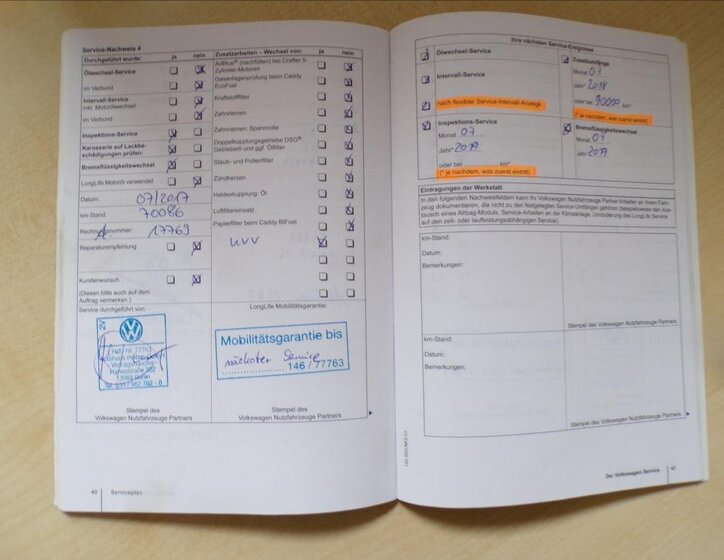 Service-Nachweis 4
Durchgeführt wurde: ja nein
Ölwechsel-Service
im Verbund
Intervall-Service
inkl. Motorölwechsel
im Verbund
Inspektions-Service
Karosserie auf Lackbe-
schädigungen prüfen:
Bremsflüssigkeitswechsel
LongLife Motoröl verwendet
Datum: 07/2017
km-Stand: 70086
Rechnungsnummer: 17769
Reparaturempfehlung
Kundenwunsch
(Diesen bitte auch auf dem
Auftrag vermerken.)
Service durchgeführt von:
Stempel des
Volkswagen Nutzfahrzeuge Partners
Zusatzarbeiten – Wechsel von: ja nein
AdBlue® (nachfüllen) bei Crafter 5-
Zylinder-Motoren
Gasanlagenprüfung beim Caddy
EcoFuel
Kraftstofffilter
Zahnriemen
Zahnriemen: Spannrolle
Doppelkupplungsgetriebe DSG®:
Getriebeöl und ggf. Ölfilter
Staub- und Pollenfilter
Zündkerzen
Haldexkupplung: Öl
Luftfiltereinsatz
Papierfilter beim Caddy BiFuel
UVV
LongLife Mobilitätsgarantie:
Mobilitätsgarantie bis
nächster Service
146 / 77763
Stempel des
Volkswagen Nutzfahrzeuge Partners
60 Serviceplan
Ihre nächsten Service-Ereignisse
Ölwechsel-Service
Intervall-Service
nach flexibler Service-Intervall-Anzeige
Zusatzumfänge
Monat 01
Jahr 2018
oder bei 90000 km*
(* je nachdem, was zuerst eintritt)
Inspektions-Service
Monat 07
Jahr 2019
oder bei km*
(* je nachdem, was zuerst eintritt)
Bremsflüssigkeitswechsel
Monat 07
Jahr 2019
Eintragungen der Werkstatt
In den folgenden Nachweisfeldern kann Ihr Volkswagen Nutzfahrzeuge Partner Arbeiten an Ihrem Fahr-
zeug dokumentieren, die nicht zu den festgelegten Service-Umfängen gehören (beispielsweise den Aus-
tausch eines Airbag-Moduls, Service-Arbeiten an der Klimaanlage, Umstellung des LongLife Service
auf den zeit- oder laufleistungsabhängigen Service).
km-Stand:
Datum:
Bemerkungen:
Stempel des Volkswagen Nutzfahrzeuge Partners
km-Stand:
Datum:
Bemerkungen:
Stempel des Volkswagen Nutzfahrzeuge Partners
Der Volkswagen Service 61